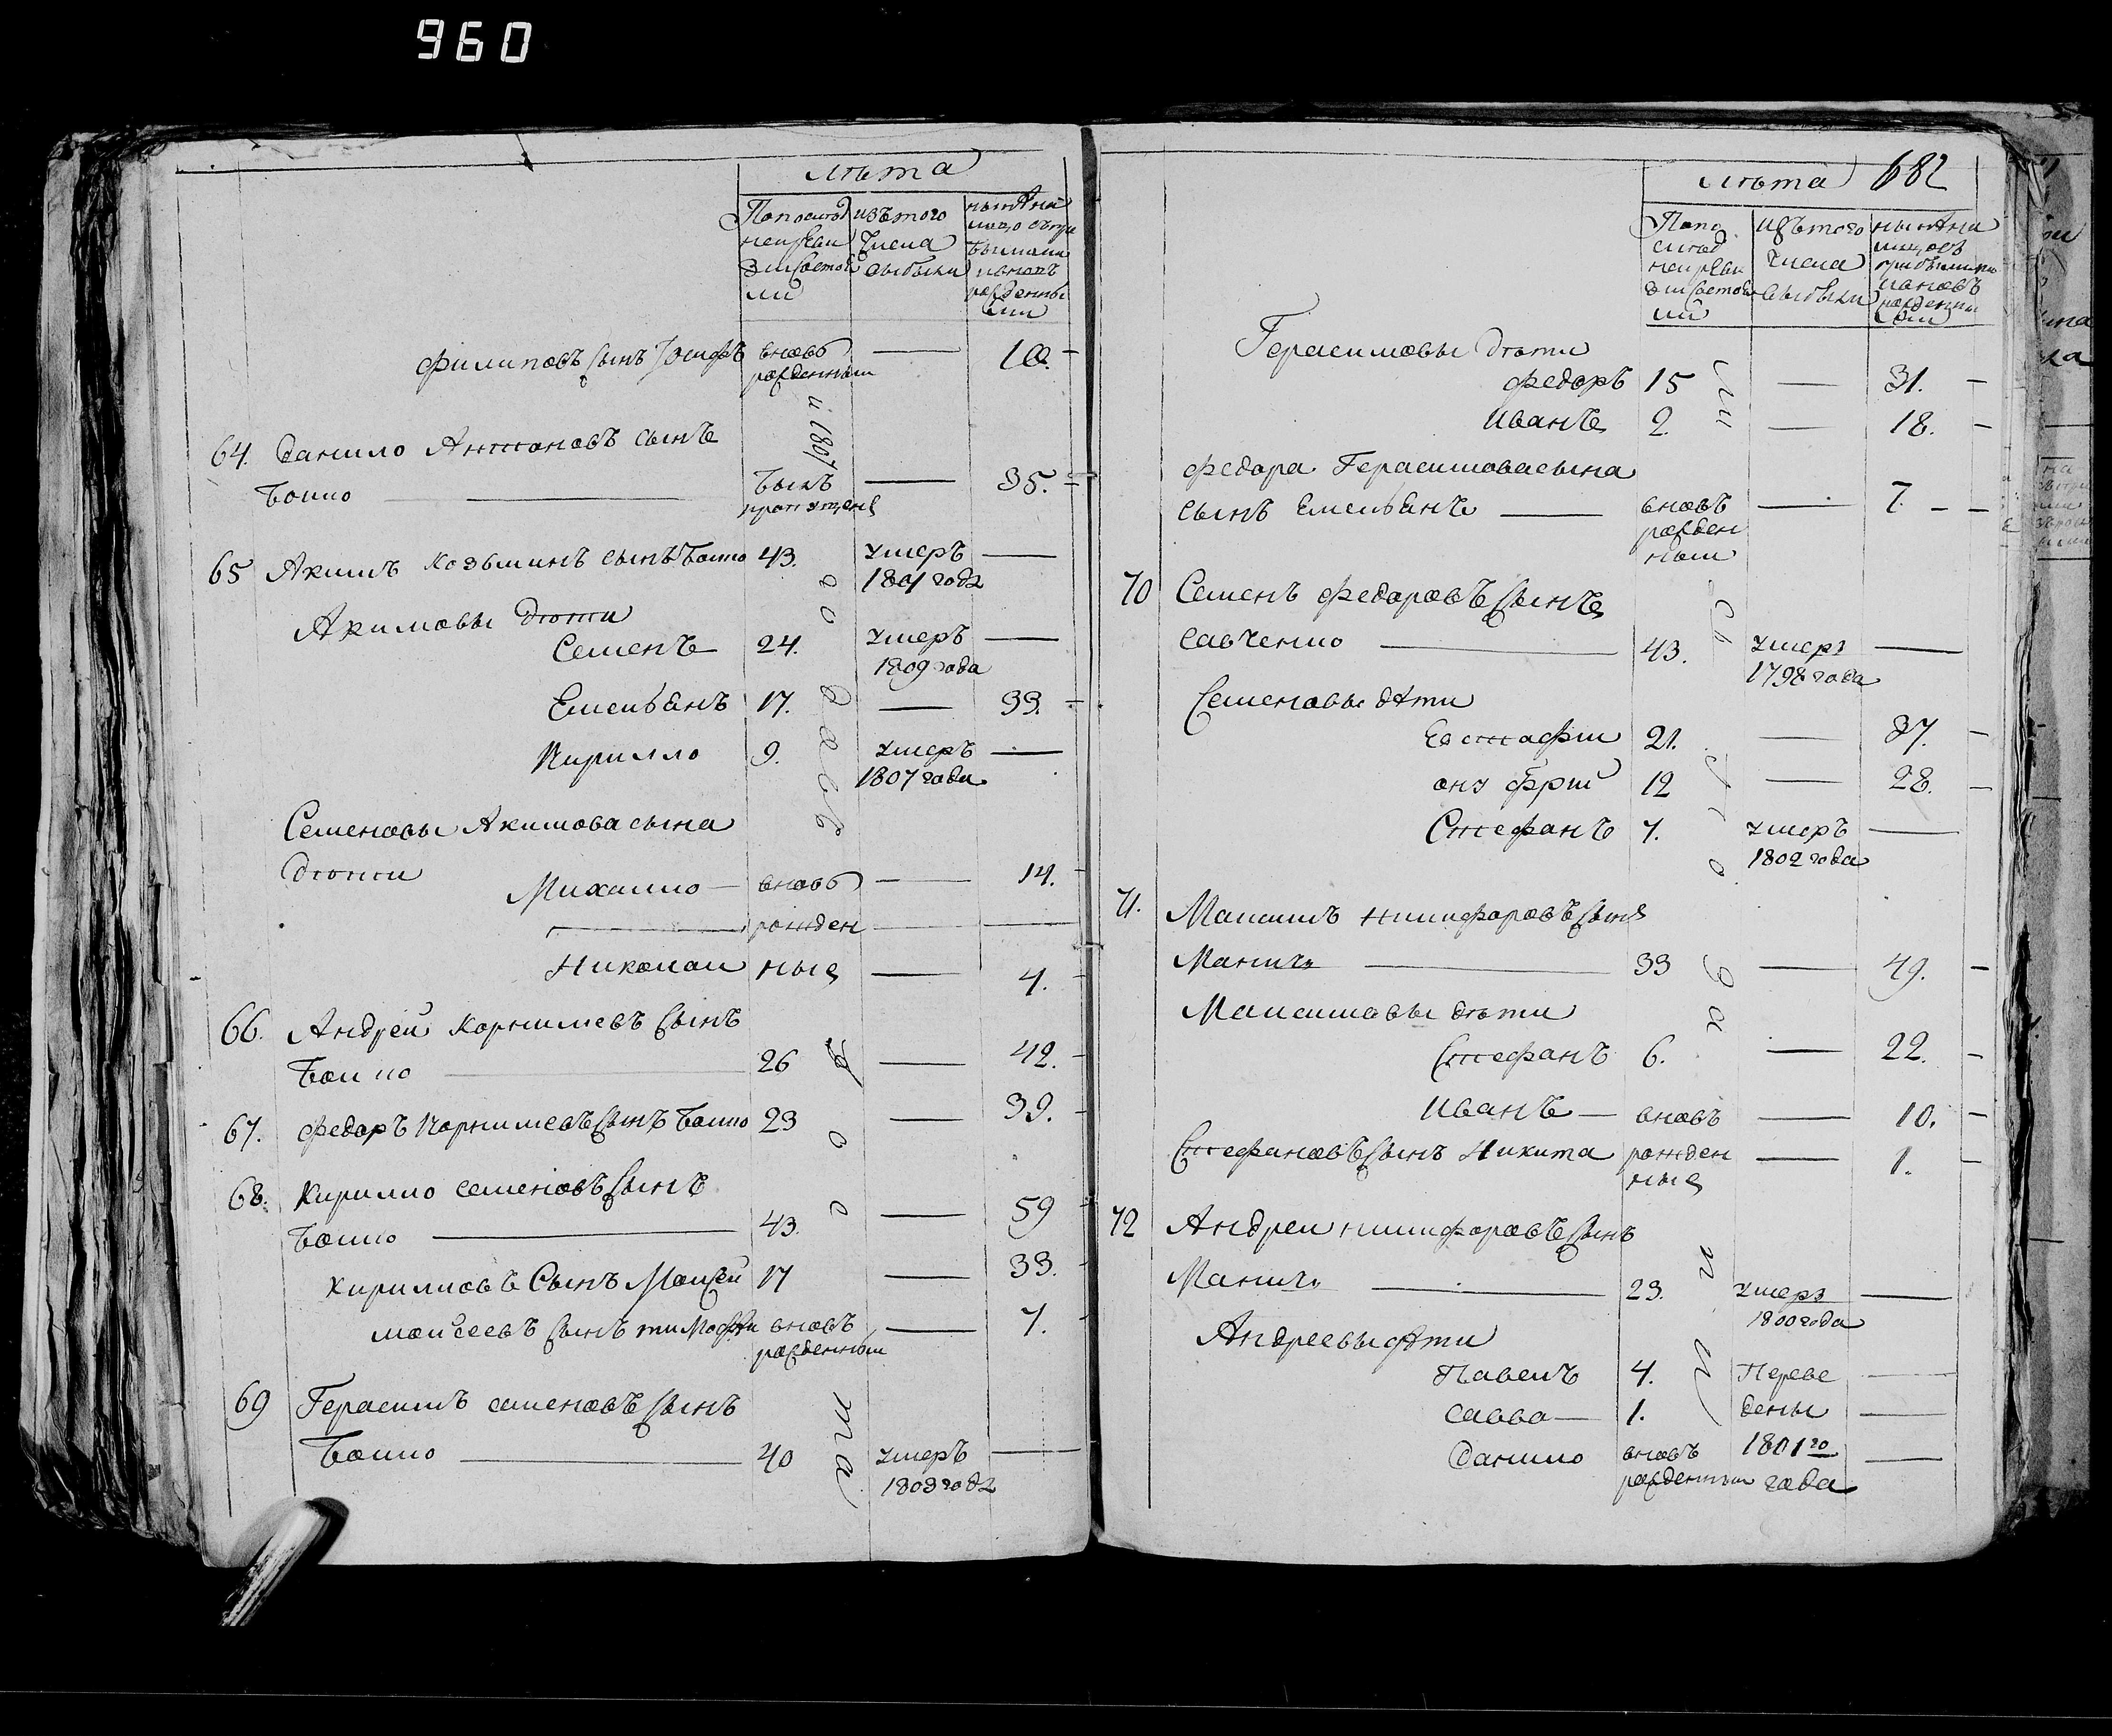 960
лѣта
По последней ревизiи состояли
изъ того числа выбыли
ныне на лицо съ прибылыми и вновь рожденными
Филиповъ сынъ Iосифъ вновь рожденный — 10.
64. Данило Антоновъ сынъ
Бойко — былъ пропущенъ — 35.
65 Акимъ Козьминъ сынъ Бойко 43. умеръ 1801 года —
Акимовы дѣти
Семенъ 24. умеръ 1809 года —
Емельянъ 17. — 33.
Кирилло 9. умеръ 1807 года —
Семеновы Акимова сына
дѣти
Михайло — вновь — 14.
рожден
Николай ные — 4.
66. Андрей Корнилиевъ сынъ
Бойко — 26 — 42.
67. Федоръ Корнилиевъ сынъ Бойко 23 — 39.
68. Кирилло Семеновъ сынъ
Бойко — 43. — 59
Кириловъ Сынъ Моисей 17 — 33.
Моисеевъ сынъ Тимофей вновь рожденный — 7.
69 Герасимъ Семеновъ сынъ
Бойко — 40 умеръ 1803 года —
682
лѣта
По последней ревизiи состояли
изъ того числа выбыли
ныне на лицо съ прибылыми и вновь рожденными
Герасимовы дѣти
Федоръ 15 — 31.
Иванъ 2. — 18.
Федора Герасимова сына
сынъ Емельянъ — вновь рожденный — 7.
70 Семенъ Федоровъ сынъ
Савченко — 43. умеръ 1798 года —
Семеновы дѣти
Евстафiй 21. — 37.
Онуфрiй 12 — 28.
Стефанъ 7. умеръ 1802 года —
71. Максимъ Никифоровъ сынъ
Манич — 33 — 49.
Максимовы дѣти
Стефанъ 6. — 22.
Иванъ — вновь — 10.
Стефановъ сынъ Никита рожденные — 1.
72 Андрей Никифоровъ сынъ
Манич — 23. умеръ 1800 года —
Андреевы дѣти
Павелъ 4. Переве —
Савва — 1. дены —
Данило вновь рожденный 1801го года —